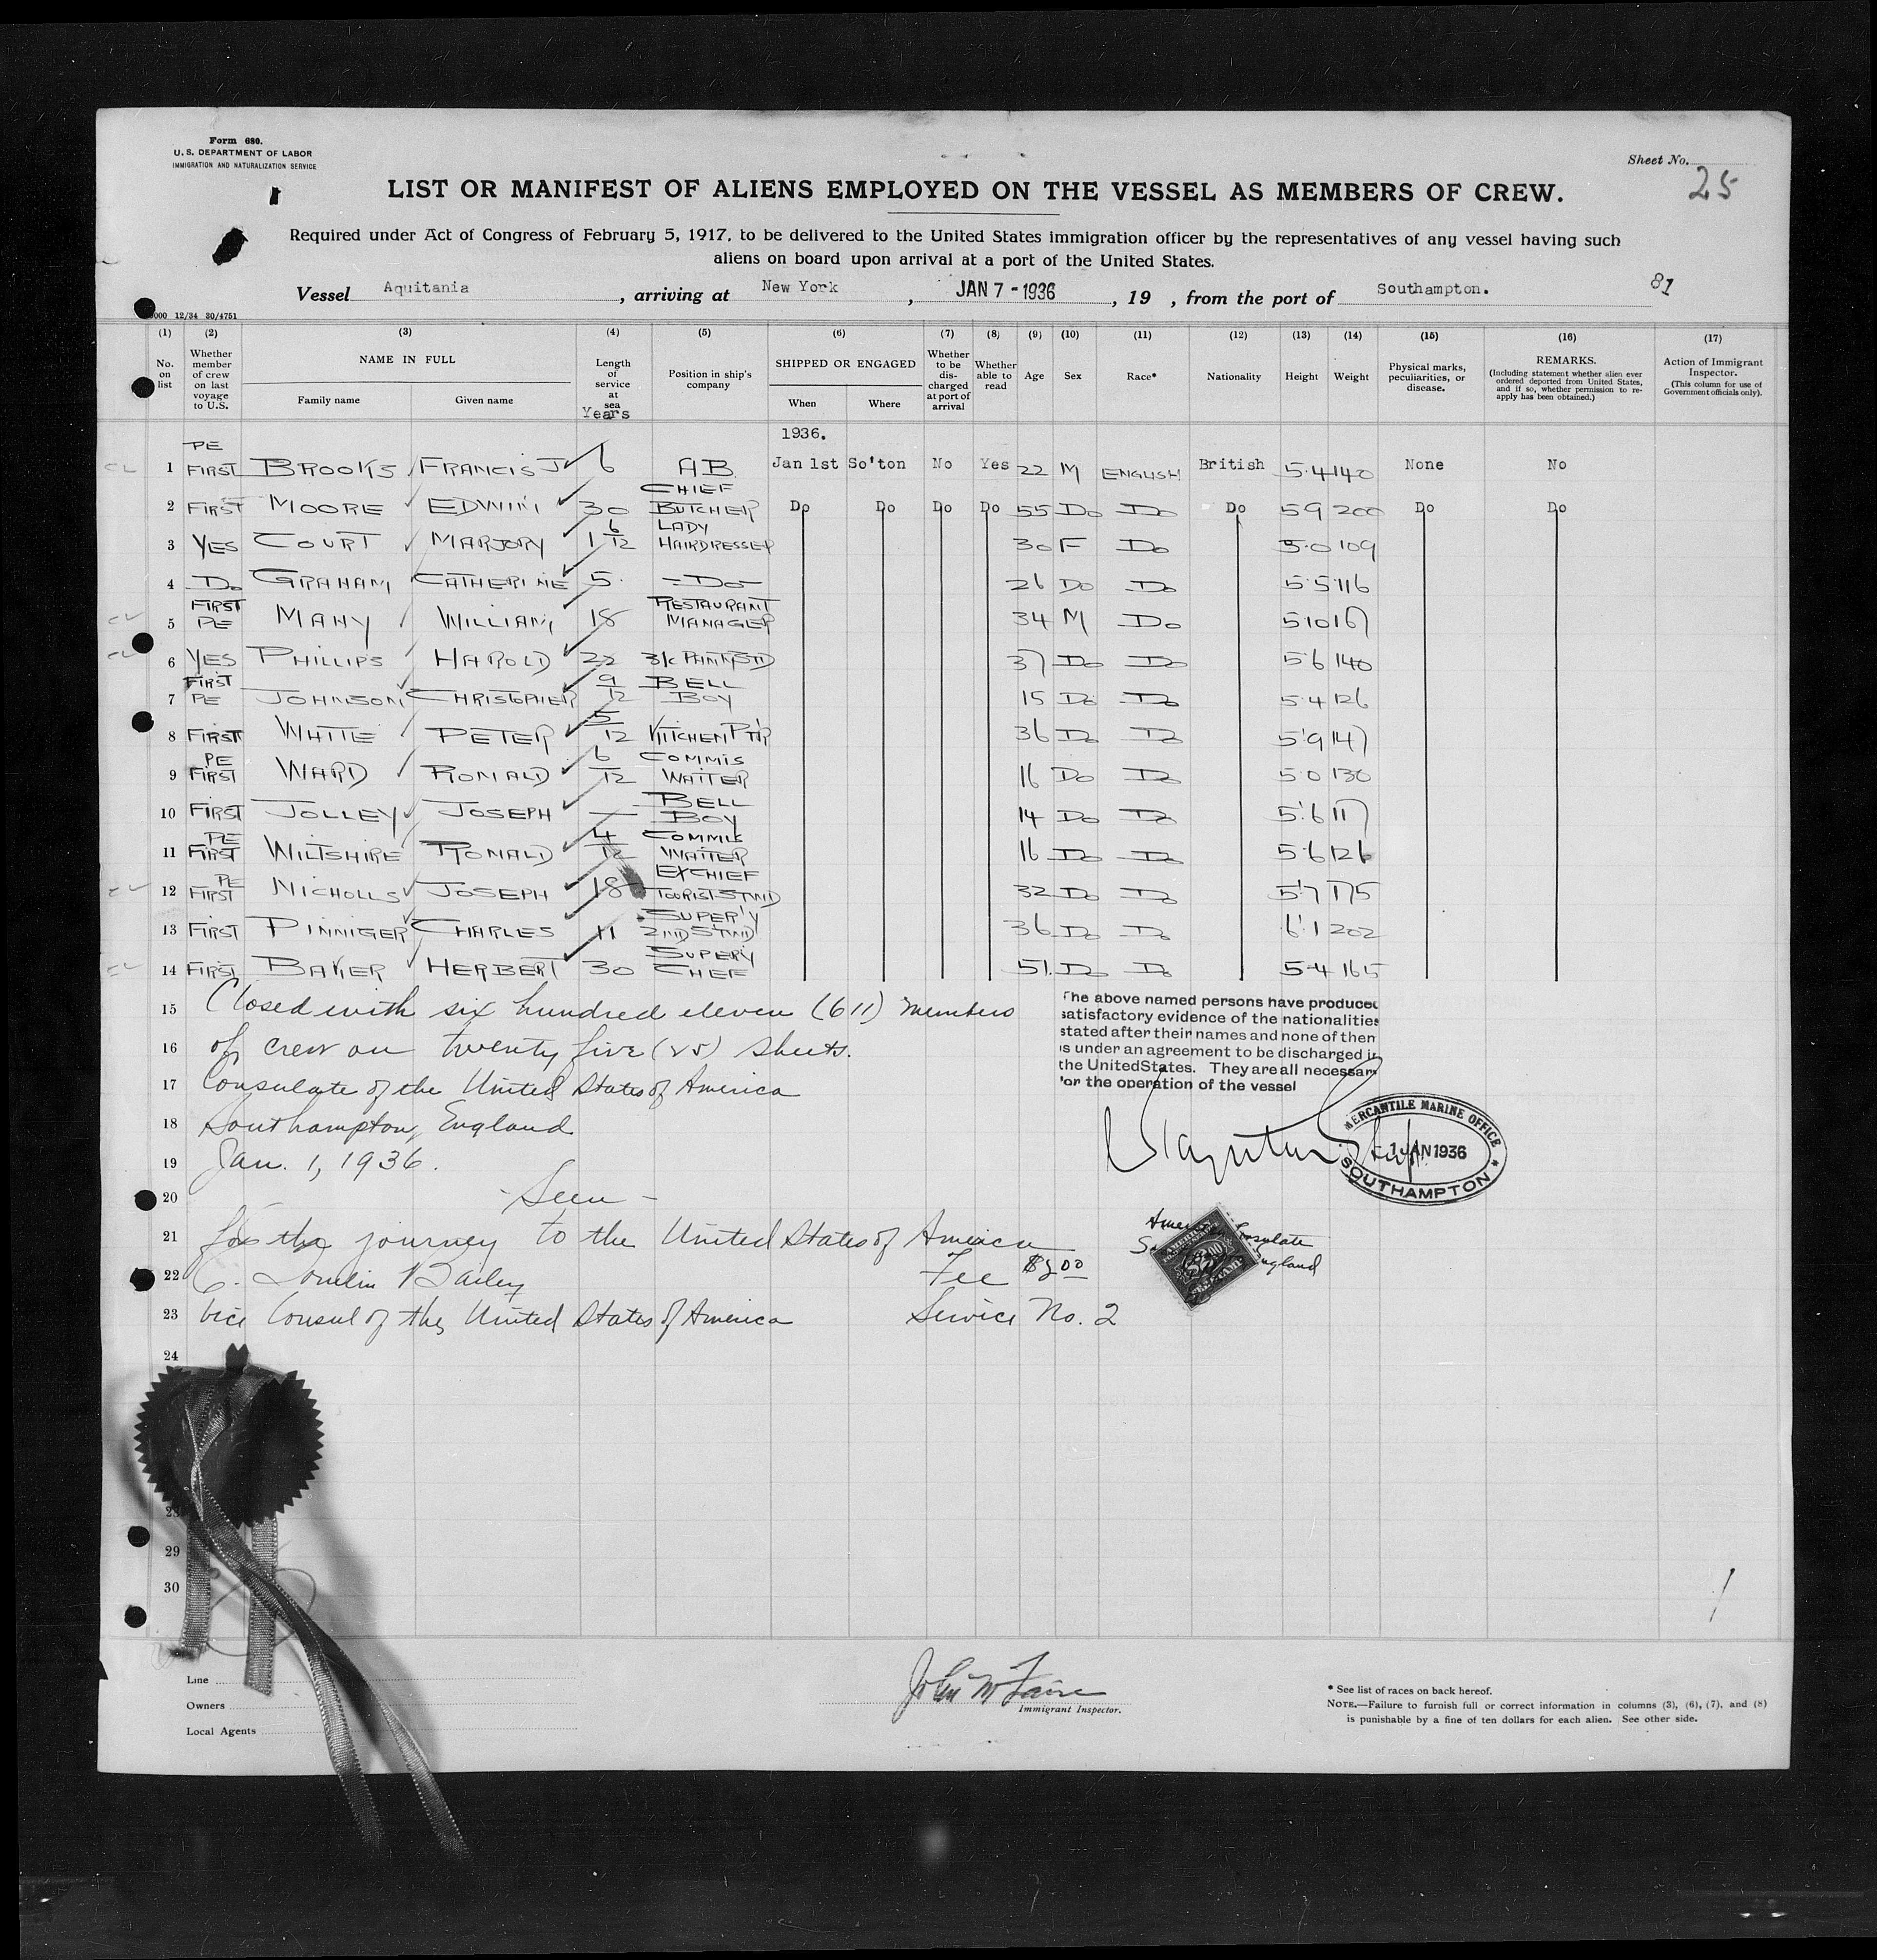 Form 680.
U. S. DEPARTMENT OF LABOR
IMMIGRATION AND NATURALIZATION SERVICE
Sheet No.
25
LIST OR MANIFEST OF ALIENS EMPLOYED ON THE VESSEL AS MEMBERS OF CREW.
Required under Act of Congress of February 5, 1917, to be delivered to the United States immigration officer by the representatives of any vessel having such
aliens on board upon arrival at a port of the United States.
Vessel Aquitania, arriving at New York, JAN 7 - 1936, 19 , from the port of Southampton.
81
000 12/34 30/4751
(1) (2) (3) (4) (5) (6) (7) (8) (9) (10) (11) (12) (13) (14) (15) (16) (17)
No. on list
Whether member of crew on last voyage to U.S.
NAME IN FULL
Family name Given name
Length of service at sea
Years
Position in ship's company
SHIPPED OR ENGAGED
When Where
Whether to be discharged at port of arrival
Whether able to read
Age
Sex
Race*
Nationality
Height
Weight
Physical marks, peculiarities, or disease.
REMARKS.
(Including statement whether alien ever ordered deported from United States, and if so, whether permission to reapply has been obtained.)
Action of Immigrant Inspector.
(This column for use of Government officials only).
1936.
1 PE FIRST BROOKS FRANCIS J 6 AB Jan 1st So'ton No Yes 22 M ENGLISH British 5.4 140 None No
2 FIRST MOORE EDWIN 30 CHIEF BUTCHER Do Do Do Do 55 Do Do Do 5 9 200 Do Do
3 YES COURT MARJORY 1 6/12 LADY HAIRDRESSER 30 F Do 5.0 109
4 Do GRAHAM CATHERINE 5. -Do- 26 Do Do 5.5 116
5 FIRST PE MANY WILLIAM 18 RESTAURANT MANAGER 34 M Do 5 10 167
6 YES PHILLIPS HAROLD 22 37 Do Do 5.6 140
7 FIRST PE JOHNSON CHRISTOPHER 9/12 BELL BOY 15 Do Do 5.4 126
8 FIRST WHITE PETER 5/12 KITCHEN PTR 36 Do Do 5'9 147
9 PE FIRST WARD RONALD 6/12 COMMIS WAITER 16 Do Do 5.0 130
10 FIRST JOLLEY JOSEPH — BELL BOY 14 Do Do 5.6 117
11 PE FIRST WILTSHIRE RONALD 4/12 COMMIS WAITER 16 Do Do 5.6 126
12 PE FIRST NICHOLLS JOSEPH 18 EX CHIEF TOURIST STWD 32 Do Do 5'7 175
13 FIRST PINNIGER CHARLES 11 SUPER'Y 2ND STWD 36 Do Do 6'.1 202
14 FIRST BAKER HERBERT 30 SUPERY CHEF 51. Do Do 5.4 165
15 Closed with six hundred eleven (611) members
16 of crew on twenty five (25) sheets.
17 Consulate of the United States of America
18 Southampton, England
19 Jan. 1, 1936.
20 - Seen -
21 for the journey to the United States of America
22 Bailey Fee $2.00
23 Vice Consul of the United States of America Service No. 2
24
29
30
The above named persons have produced
satisfactory evidence of the nationalities
stated after their names and none of them
is under an agreement to be discharged in
the United States. They are all necessary
for the operation of the vessel
MERCANTILE MARINE OFFICE
1 JAN 1936
SOUTHAMPTON
American Consulate
England
Line
Owners
Local Agents
Immigrant Inspector.
* See list of races on back hereof.
NOTE.—Failure to furnish full or correct information in columns (3), (6), (7), and (8)
is punishable by a fine of ten dollars for each alien. See other side.